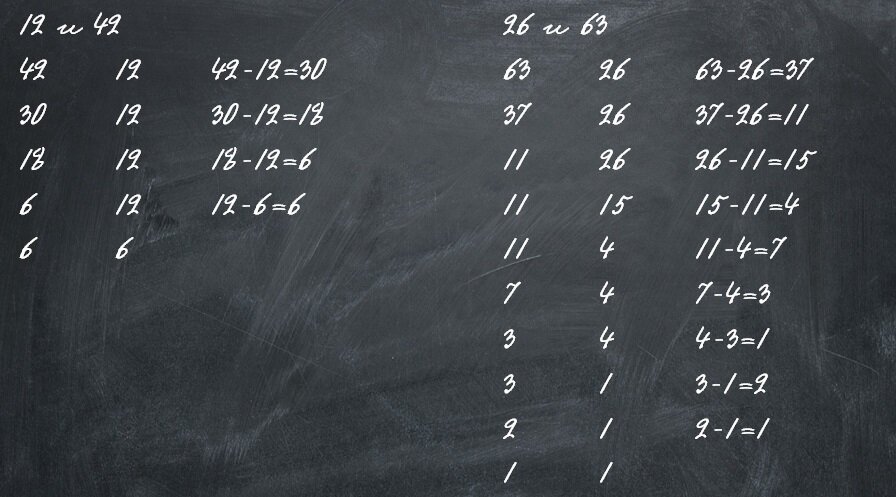 12 и 42
42 12 42-12=30
30 12 30-12=18
18 12 18-12=6
6 12 12-6=6
6 6
26 и 63
63 26 63-26=37
37 26 37-26=11
11 26 26-11=15
11 15 15-11=4
11 4 11-4=7
7 4 7-4=3
3 4 4-3=1
3 1 3-1=2
2 1 2-1=1
1 1